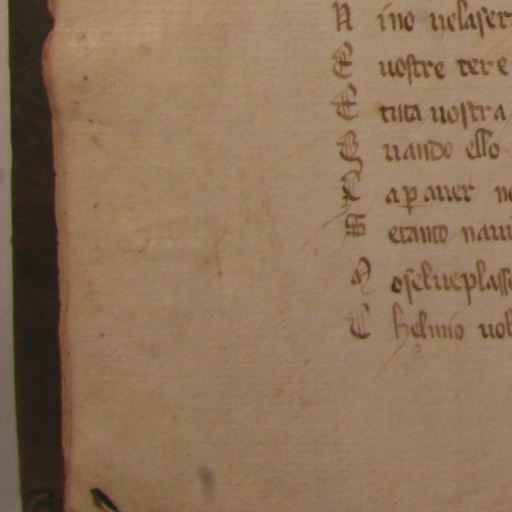 N ino uelaser
E uostre tere
E tuta uostra
Q uando ello
E aꝑ auer ne
E tanto naui
N oselueplasse
C helmio uol